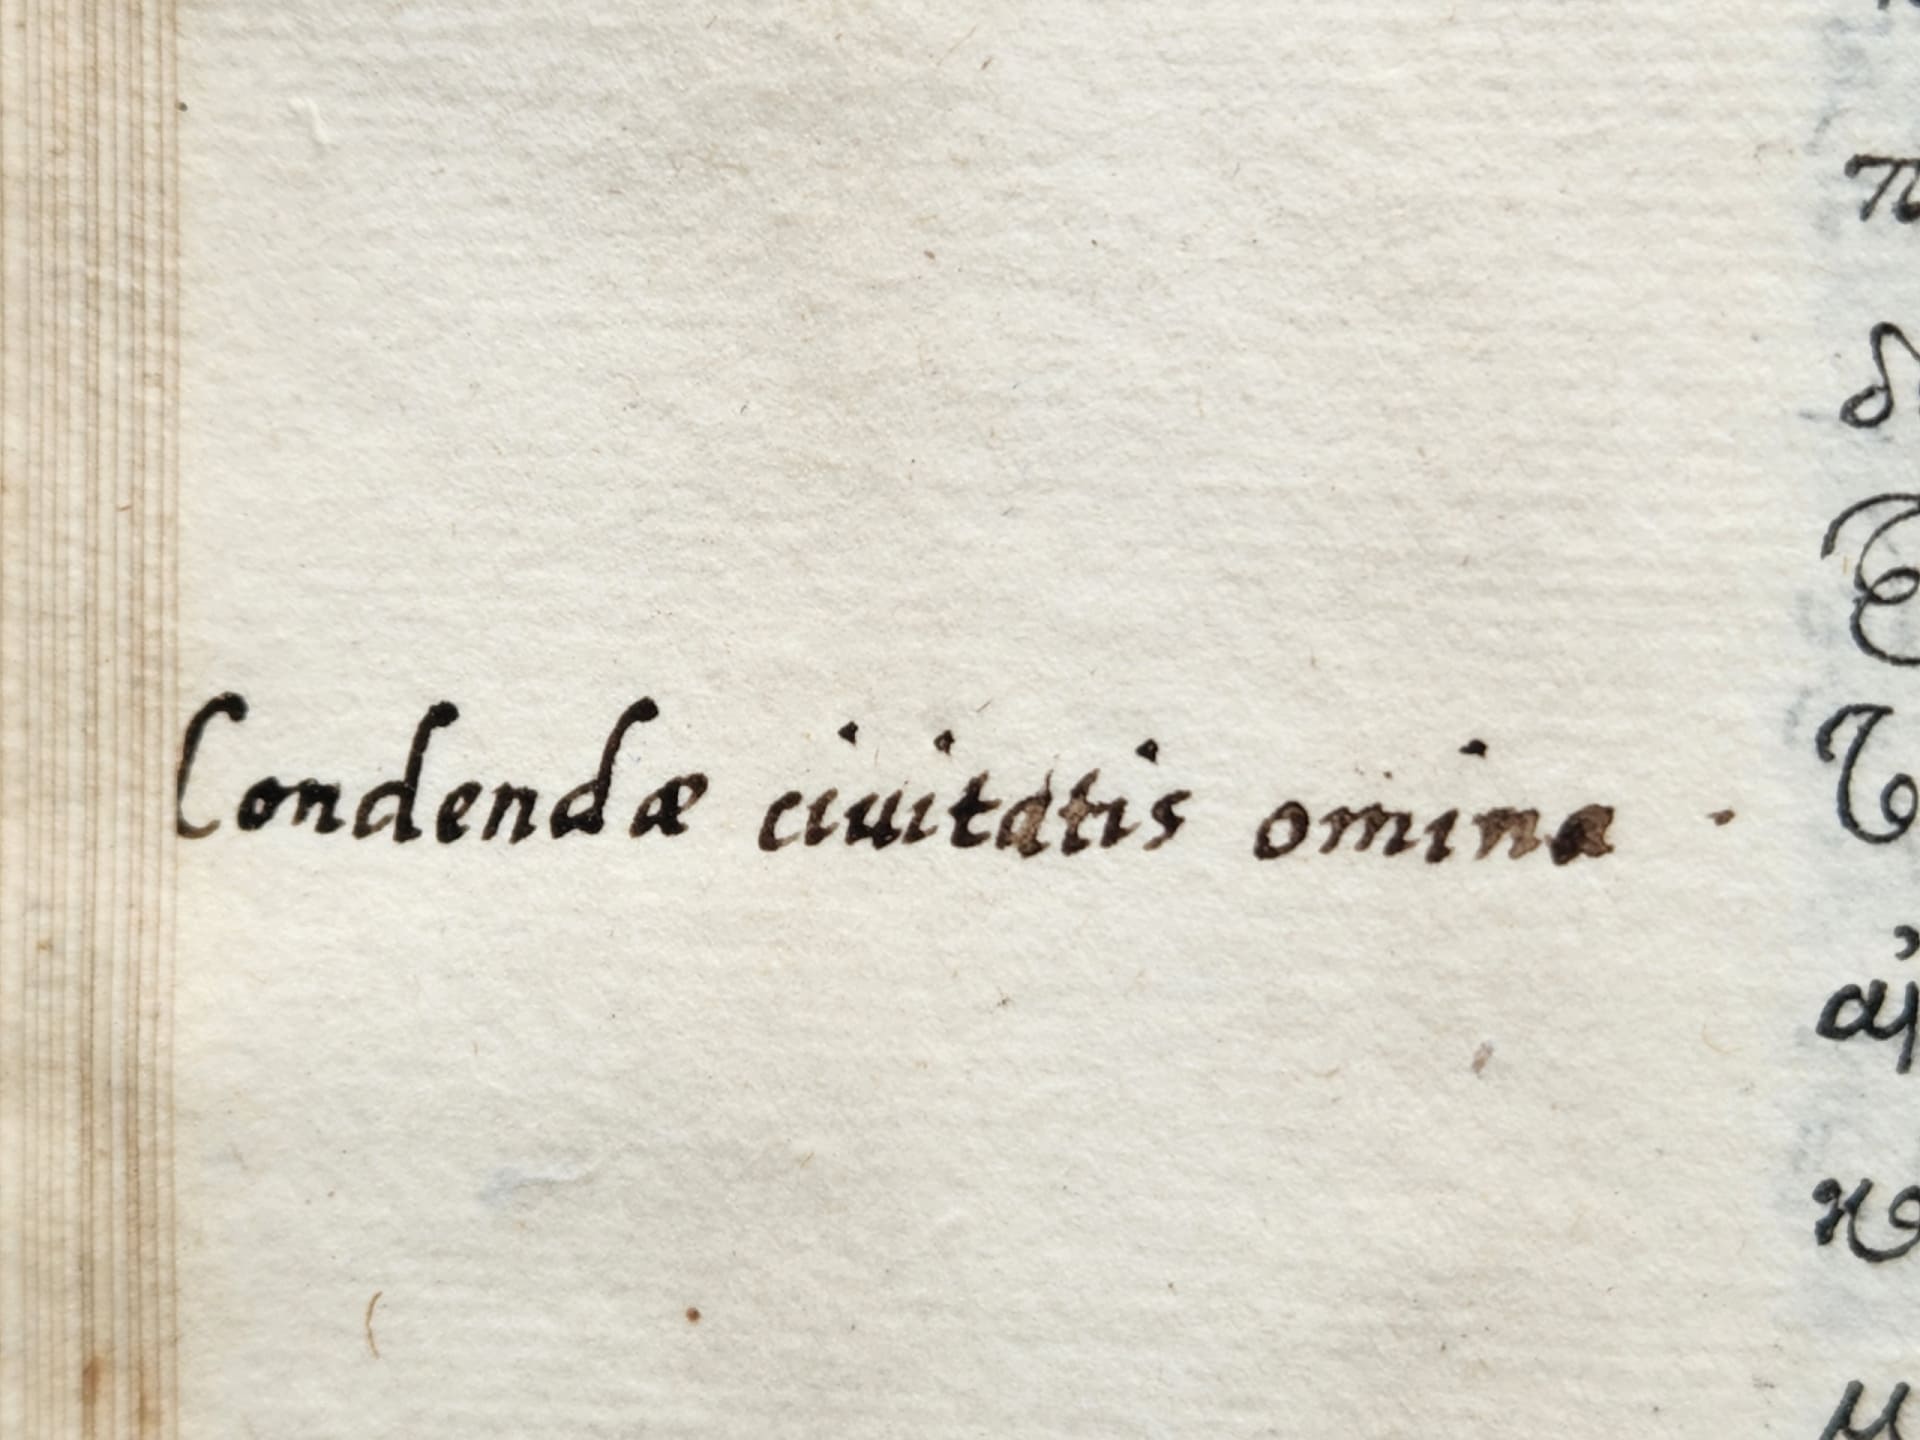 Condendæ ciuitatis omina .